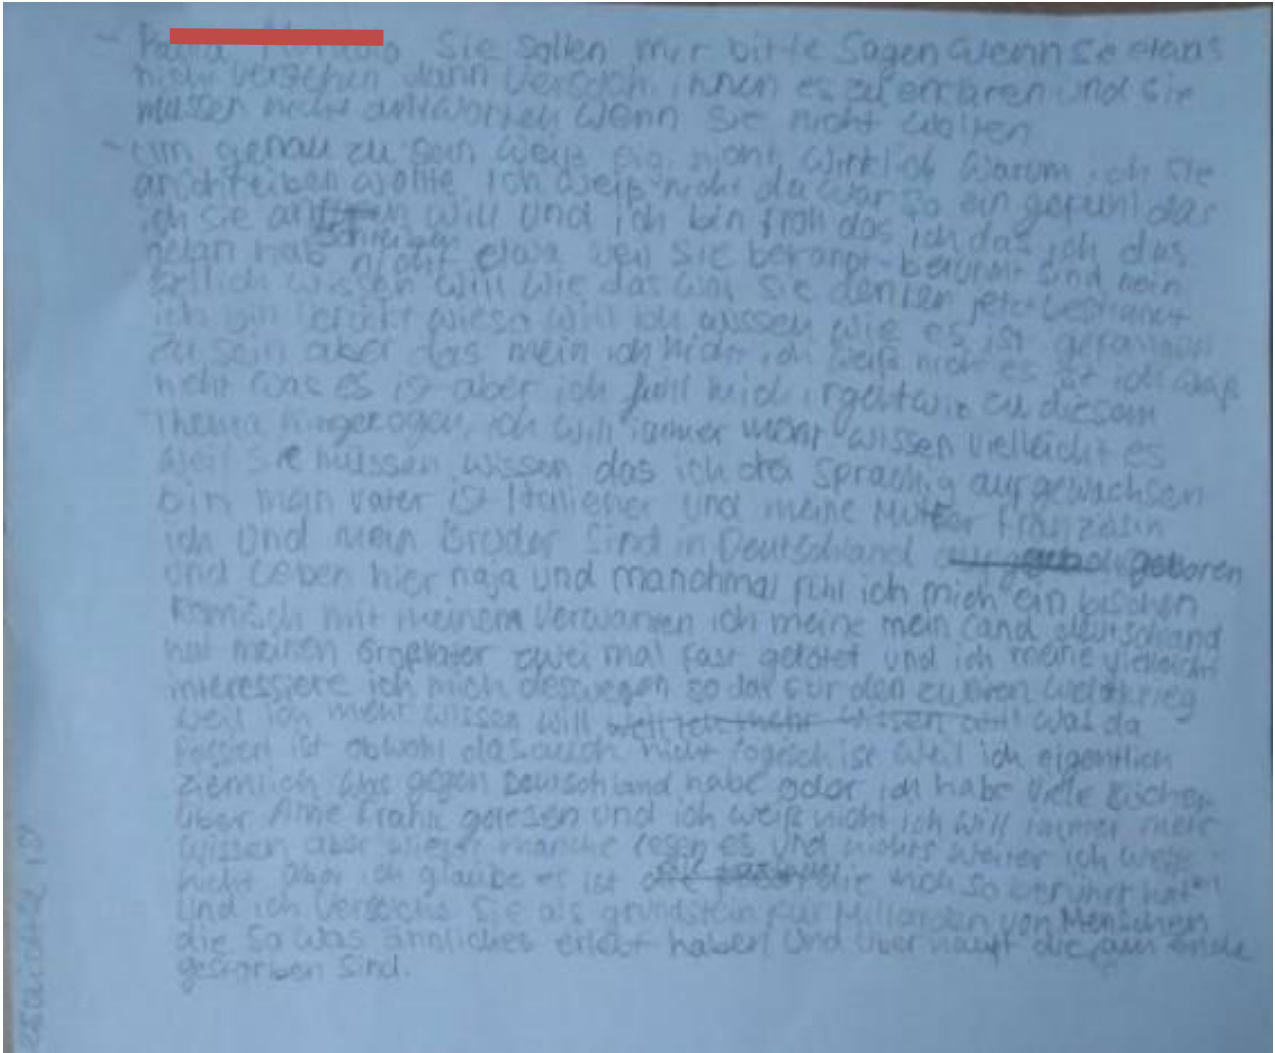 - Sie sollen mir bitte Sagen wenn sie etwas
nicht versehen dann Versuch ihnen es zu erklaren und sie
müssen nicht antworten wenn Sie nicht wollen
- um genau zu sein weiß nicht wirklich warum ich sie
anschreiben wollte ich weiß nicht da war so ein gefühl das
ich sie will und ich bin froh das ich das ich das
schreiben
getan hab nicht etwa weil sie bekannt berühmt sind nein
wissen will wie das war sie denken jetzt bestimmt
ich bin verückt wieso will ich wissen wie es ist gefangen
zu sein aber das mein ich nicht ich weiß nicht es ist ich weiß
nicht was es ist aber ich fühl mich irgentwie zu diesem
Thema hingezogen, ich will immer mehr wissen vielleicht es
weil sie müssen wissen das ich drei sprachig aufgewachsen
bin mein vater ist Italiener und meine Mutter Französin
ich und mein Bruder sind in Deutschland geboren
und Leben hier naja und manchmal fühl ich mich ein bischen
komisch mit meinem Verwanten ich meine mein Land deutschland
hat meinen Großvater zwei mal fast getötet und ich meine vielleicht
interessiere ich mich deswegen so dar für den zweiten weltkrieg
weil ich mehr wissen will weil ich mehr wissen will was da
passiert ist obwohl das auch nicht logisch ist weil ich eigentlich
ziemlich gegen Deutschland habe ich habe viele Bücher
über Anne Frank gelesen und ich weiß nicht ich will immer mehr
wissen aber manche lesen es und nichts weiter ich weiß
nicht aber ich glaube es ist die mich so berührt hat
und ich Sie als grundstein für Milliarden von Menschen
die so was ännliches erlebt haben und über haupt die am ende
gestorben sind.